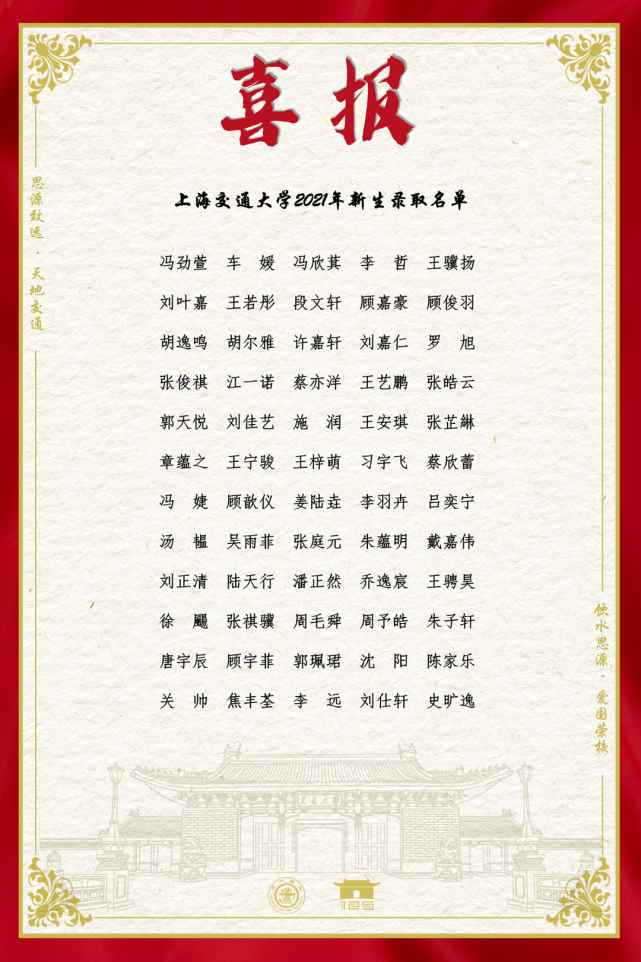 喜报
上海交通大学2021年新生录取名单
思源致远·天地交通
冯劲萱 车媛 冯欣萁 李哲 王骥扬
刘叶嘉 王若彤 段文轩 顾嘉豪 顾俊羽
胡逸鸣 胡尔雅 许嘉轩 刘嘉仁 罗旭
张俊祺 江一诺 蔡亦洋 王艺鹏 张皓云
郭天悦 刘佳艺 施润 王安琪 张芷綝
章蕴之 王宁骏 王梓萌 习宇飞 蔡欣蕾
冯婕 顾歆仪 姜陆垚 李羽卉 吕奕宁
汤韫 吴雨菲 张庭元 朱蕴明 戴嘉伟
刘正清 陆天行 潘正然 乔逸宸 王骋昊
徐飚 张祺骥 周毛舜 周予皓 朱子轩
唐宇辰 顾宇菲 郭珮珺 沈阳 陈家乐
关帅 焦丰荃 李远 刘仕轩 史旷逸
饮水思源·爱国荣校